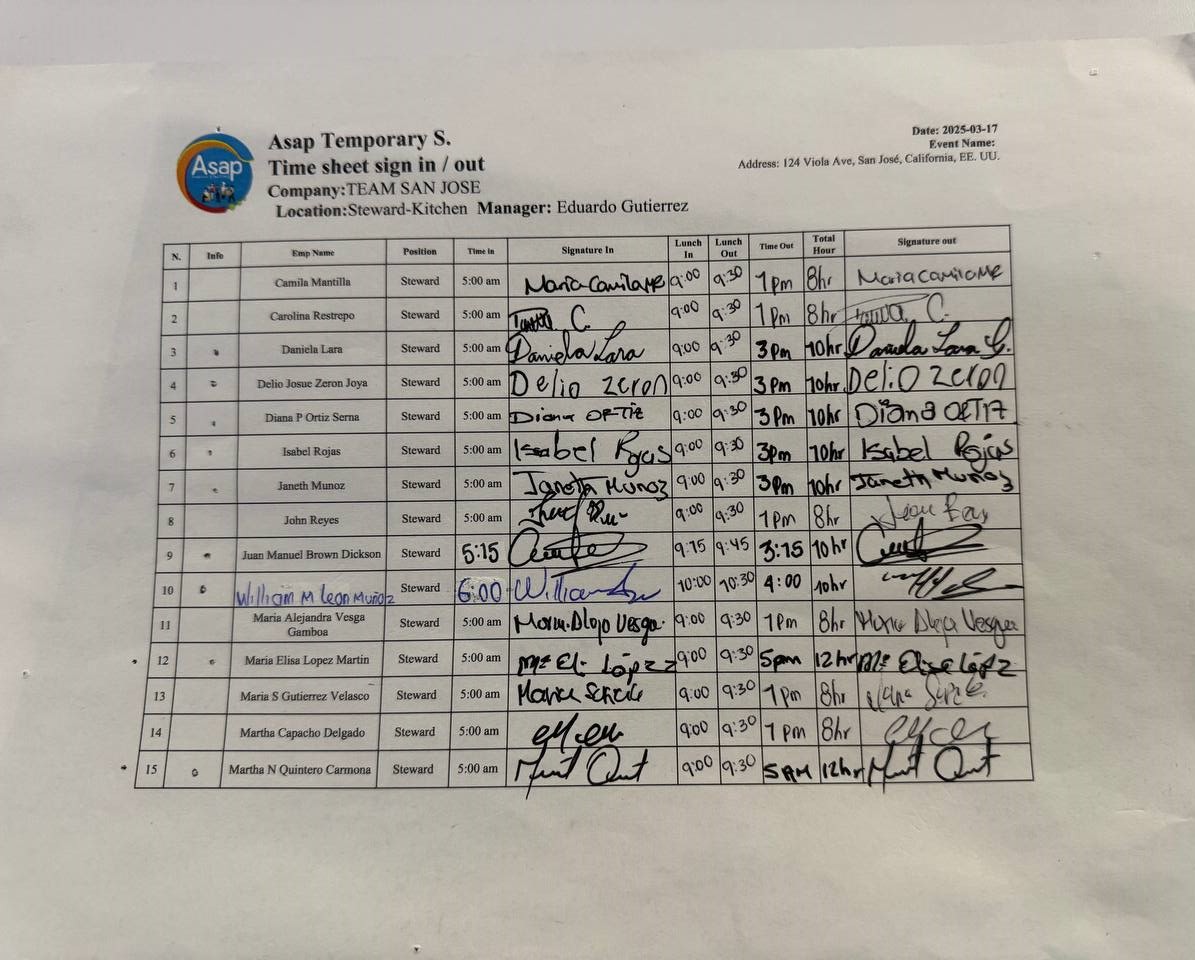 Asap
Asap Temporary S.
Time sheet sign in / out
Company:TEAM SAN JOSE
Location:Steward-Kitchen Manager: Eduardo Gutierrez
Date: 2025-03-17
Event Name:
Address: 124 Viola Ave, San José, California, EE. UU.
N. Info Emp Name Position Time in Signature In Lunch In Lunch Out Time Out Total Hour Signature out
1 Camila Mantilla Steward 5:00 am Maria Camila MR 9:00 9:30 1pm 8hr Maria Camila MR
2 Carolina Restrepo Steward 5:00 am C. 9:00 9:30 1pm 8hr C.
3 Daniela Lara Steward 5:00 am Daniela Lara 9:00 9:30 3pm 10hr Daniela Lara G.
4 Delio Josue Zeron Joya Steward 5:00 am Delio Zeron 9:00 9:30 3pm 10hr Delio Zeron
5 Diana P Ortiz Serna Steward 5:00 am Diana ORTIZ 9:00 9:30 3pm 10hr Diana ORTIZ
6 Isabel Rojas Steward 5:00 am Isabel Rojas 9:00 9:30 3pm 10hr Isabel Rojas
7 Janeth Munoz Steward 5:00 am Janeth Munoz 9:00 9:30 3pm 10hr Janeth Munoz
8 John Reyes Steward 5:00 am 9:00 9:30 1pm 8hr
9 Juan Manuel Brown Dickson Steward 5:15 9:15 9:45 3:15 10hr
10 William M Leon Muñoz Steward 6:00 William 10:00 10:30 4:00 10hr
11 Maria Alejandra Vesga Gamboa Steward 5:00 am Maria Aleja Vesga 9:00 9:30 1pm 8hr Maria Aleja Vesga
12 Maria Elisa Lopez Martin Steward 5:00 am Mª El. López 9:00 9:30 5pm 12hr Mª Elisa López
13 Maria S Gutierrez Velasco Steward 5:00 am Maria 9:00 9:30 1pm 8hr
14 Martha Capacho Delgado Steward 5:00 am 9:00 9:30 1pm 8hr
15 Martha N Quintero Carmona Steward 5:00 am 9:00 9:30 5AM 12hr